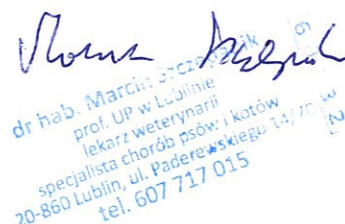 dr hab. Marcin
prof. UP w Lublinie
lekarz weterynarii
specjalista chorób psów i kotów
20-860 Lublin, ul. Paderewskiego 14/70
tel. 607 717 015